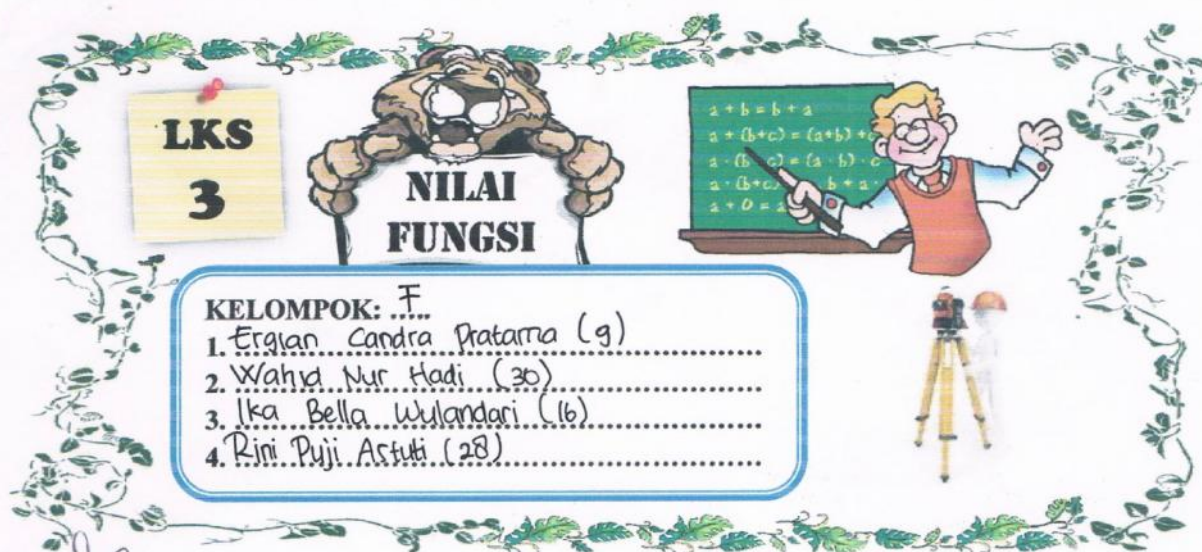 LKS
3
NILAI
FUNGSI
a + b = b + a
a + (b+c) = (a+b) + c
a · (b · c) = (a · b) · c
a · (b+c) b + a ·
a + 0 = a
KELOMPOK: F
1. Ergian Candra Pratama (9)
2. Wahid Nur Hadi (30)
3. Ika Bella Wulandari (16)
4. Rini Puji Astuti (28)